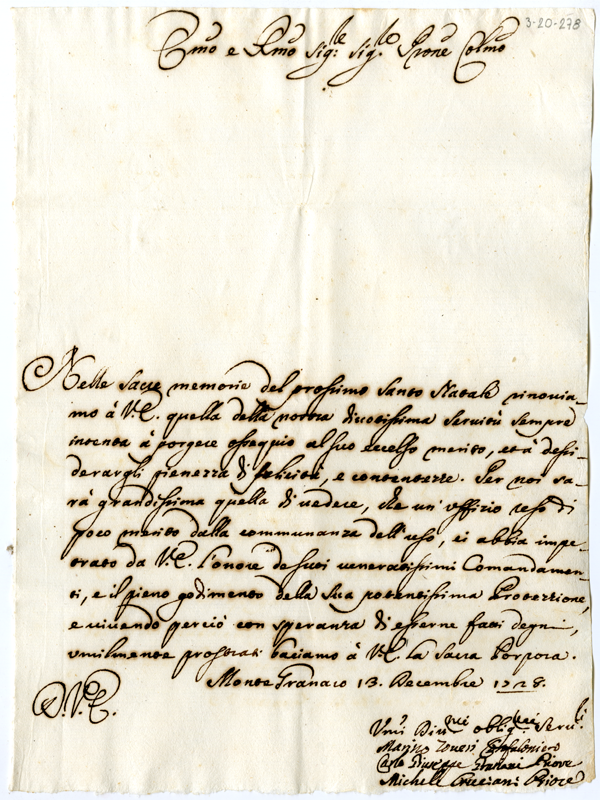 3-20-278
Emo e Rmo Sig.re Sig.re Prone Colmo
Nelle sacre memorie del prossimo Santo Natale rinovia-
mo à V.E. quella della nostra divotissima servitù sempre
intenta à porgere ossequio al suo eccelso merito, et à desi-
derargli pienezza di felicità, e contentezze. Per noi sa-
rà grandissima quella di vedere, che un' uffizio reso di
poco merito dalla communanza dell'uso, ci abbia impe-
trato da V.E. l'onore de suoi veneratissimi Comandamen-
ti, e il pieno godimento della Sua potentissima Protezzione,
e vivendo perciò con speranza di esserne fatti degni,
umilmente prostrati baciamo à V.E. la Sacra Porpora.
Monte Granaro 13. Decembre 1728.
D.V.E.
Umi Divmi obligmi Servi
Marino Confaloniero
Carlo Giuseppe Priore
Michele Priore